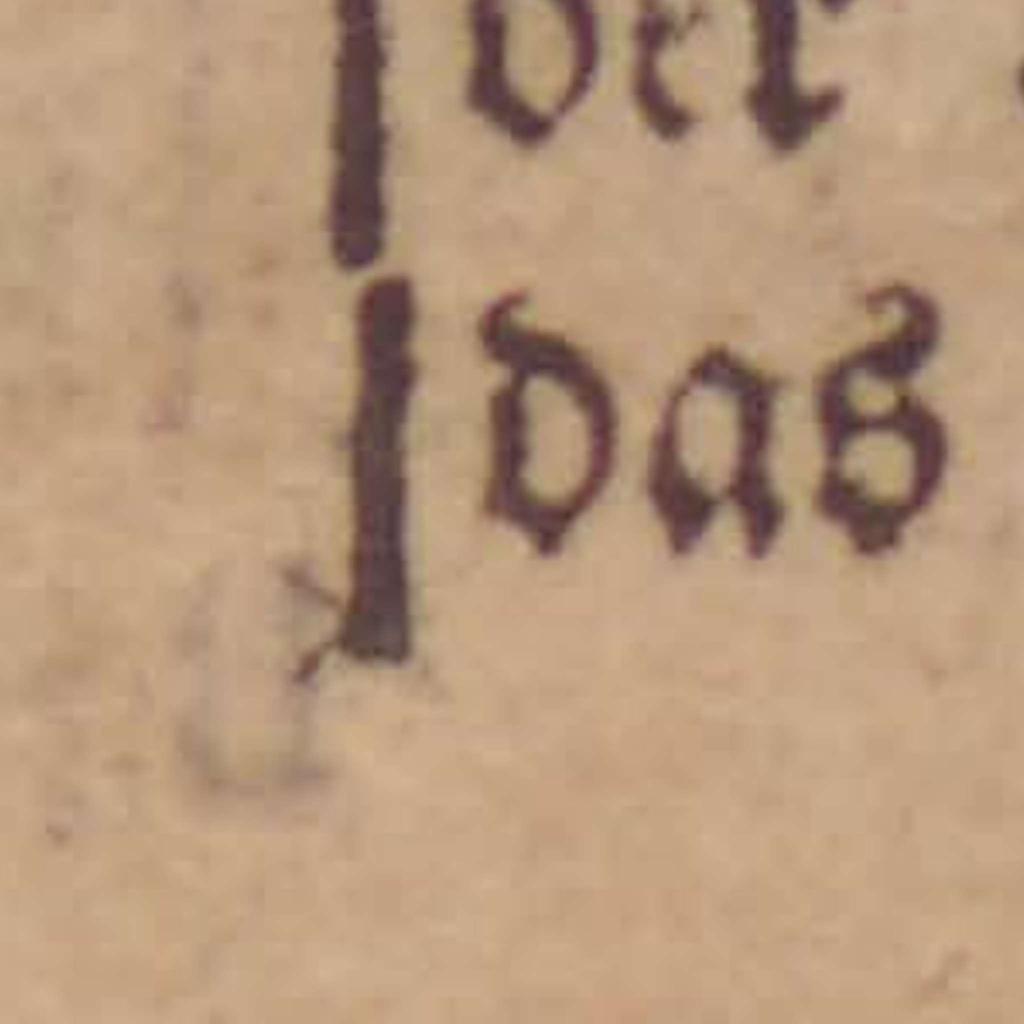 der
I das